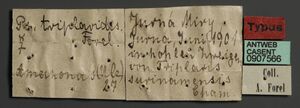 Ps. triplaridis
Forel
☿
Amazonas Ule
27
Jurua Miry
Jurua Juni 1901
in hohlen Zweigen
von Triplaris
surinamensis
Cham.
Typus
ANTWEB
CASENT
0907566
Coll.
A. Forel